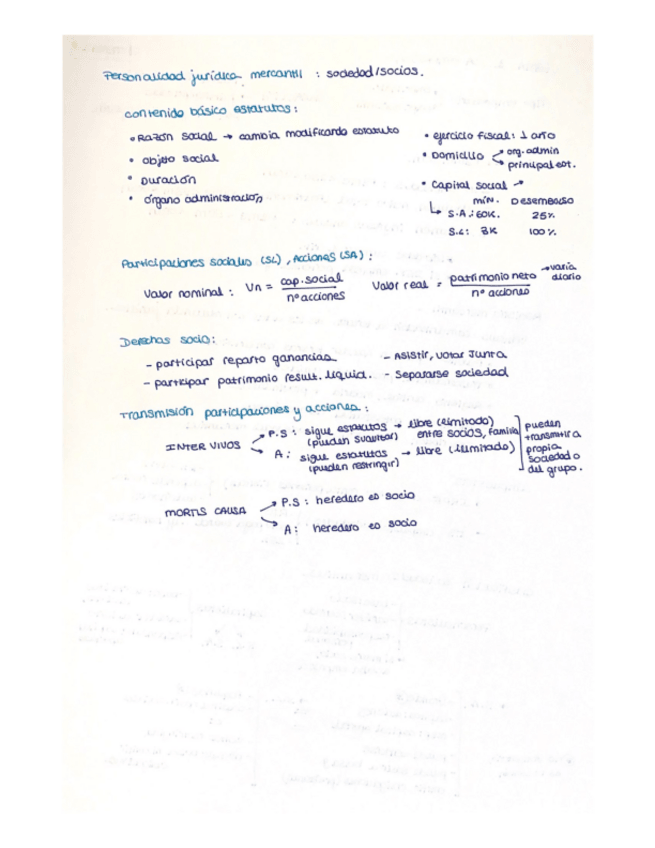 Personalidad jurídica mercantil : sociedad/socios.
contenido básico estatutos:
• Razón social → cambia modificando estatuto
• objeto social
• Duración
• órgano administración
• ejercicio fiscal: 1 año
• Domicilio org. admin
principal est.
• Capital social →
mín. Desembolso
S.A.: 60K. 25%
S.L: 3K 100%
Participaciones sociales (SL), Acciones (SA):
Valor nominal: Vn = cap. social / nº acciones
Valor real = patrimonio neto / nº acciones → varía diario
Derechos socio:
- participar reparto ganancias
- participar patrimonio result. liquid.
- Asistir, votar Junta
- Separarse sociedad
Transmisión participaciones y acciones:
INTER VIVOS
P.S: sigue estatutos → libre (limitado)
(pueden suavizar) entre socios, familia
A: sigue estatutos → libre (ilimitado)
(pueden restringir)
pueden
transmitir a
propia
sociedad o
del grupo.
MORTIS CAUSA
P.S: heredero es socio
A: heredero es socio